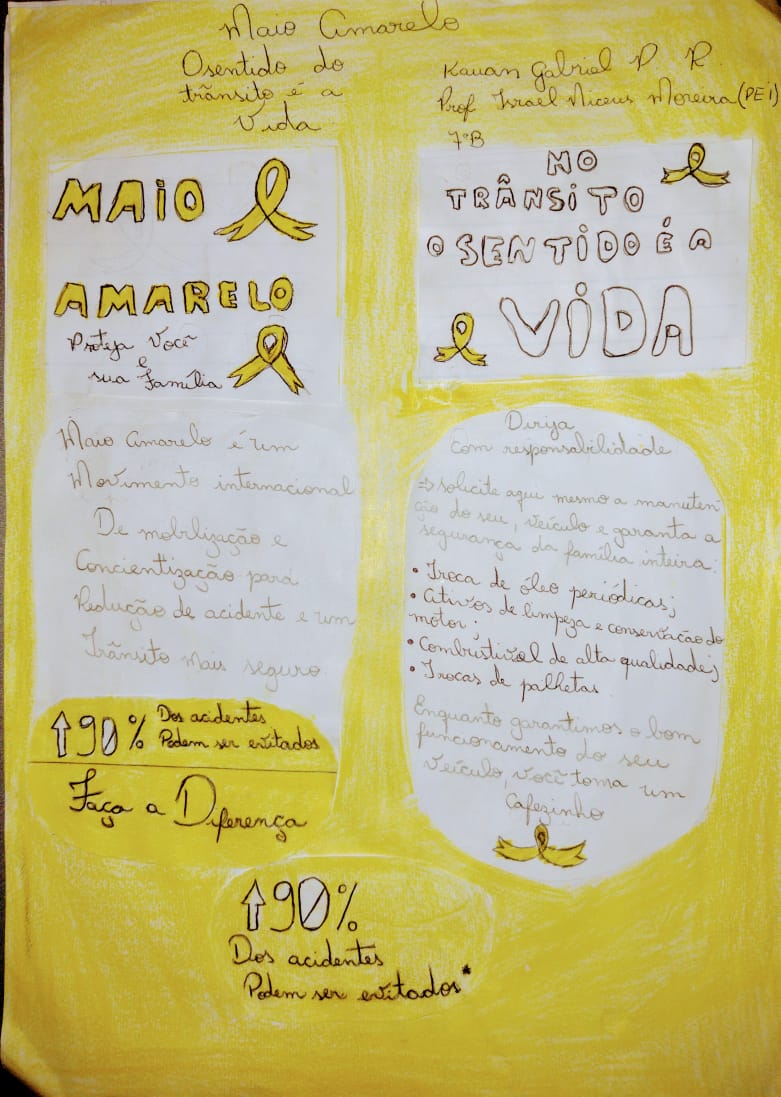 Maio Amarelo
O sentido do
trânsito é a
Vida
Kauan Gabriel P. R.
Prof Israel Niceus Moreira (PEI)
7ºB
MAIO
AMARELO
Proteja você
e
sua Família
NO
TRÂNSITO
O SENTIDO É A
VIDA
Maio Amarelo é um
Movimento internacional
De mobilização e
Concientização para
Redução de acidente e um
Trânsito mais seguro.
↑90% Dos acidentes
Podem ser evitados
Faça a Diferença
Dirija
com responsabilidade
⇒ solicite aqui mesmo a manuten
ção do seu, veículo e garanta a
segurança da família inteira:
• Troca de óleo periódicas;
• Ativos de limpeza e conservação do
motor;
• Combustível de alta qualidade;
• Trocas de palhetas.
Enquanto garantimos o bom
funcionamento do seu
veículo, você toma um
Cafezinho
↑90%
Dos acidentes
Podem ser evitados*